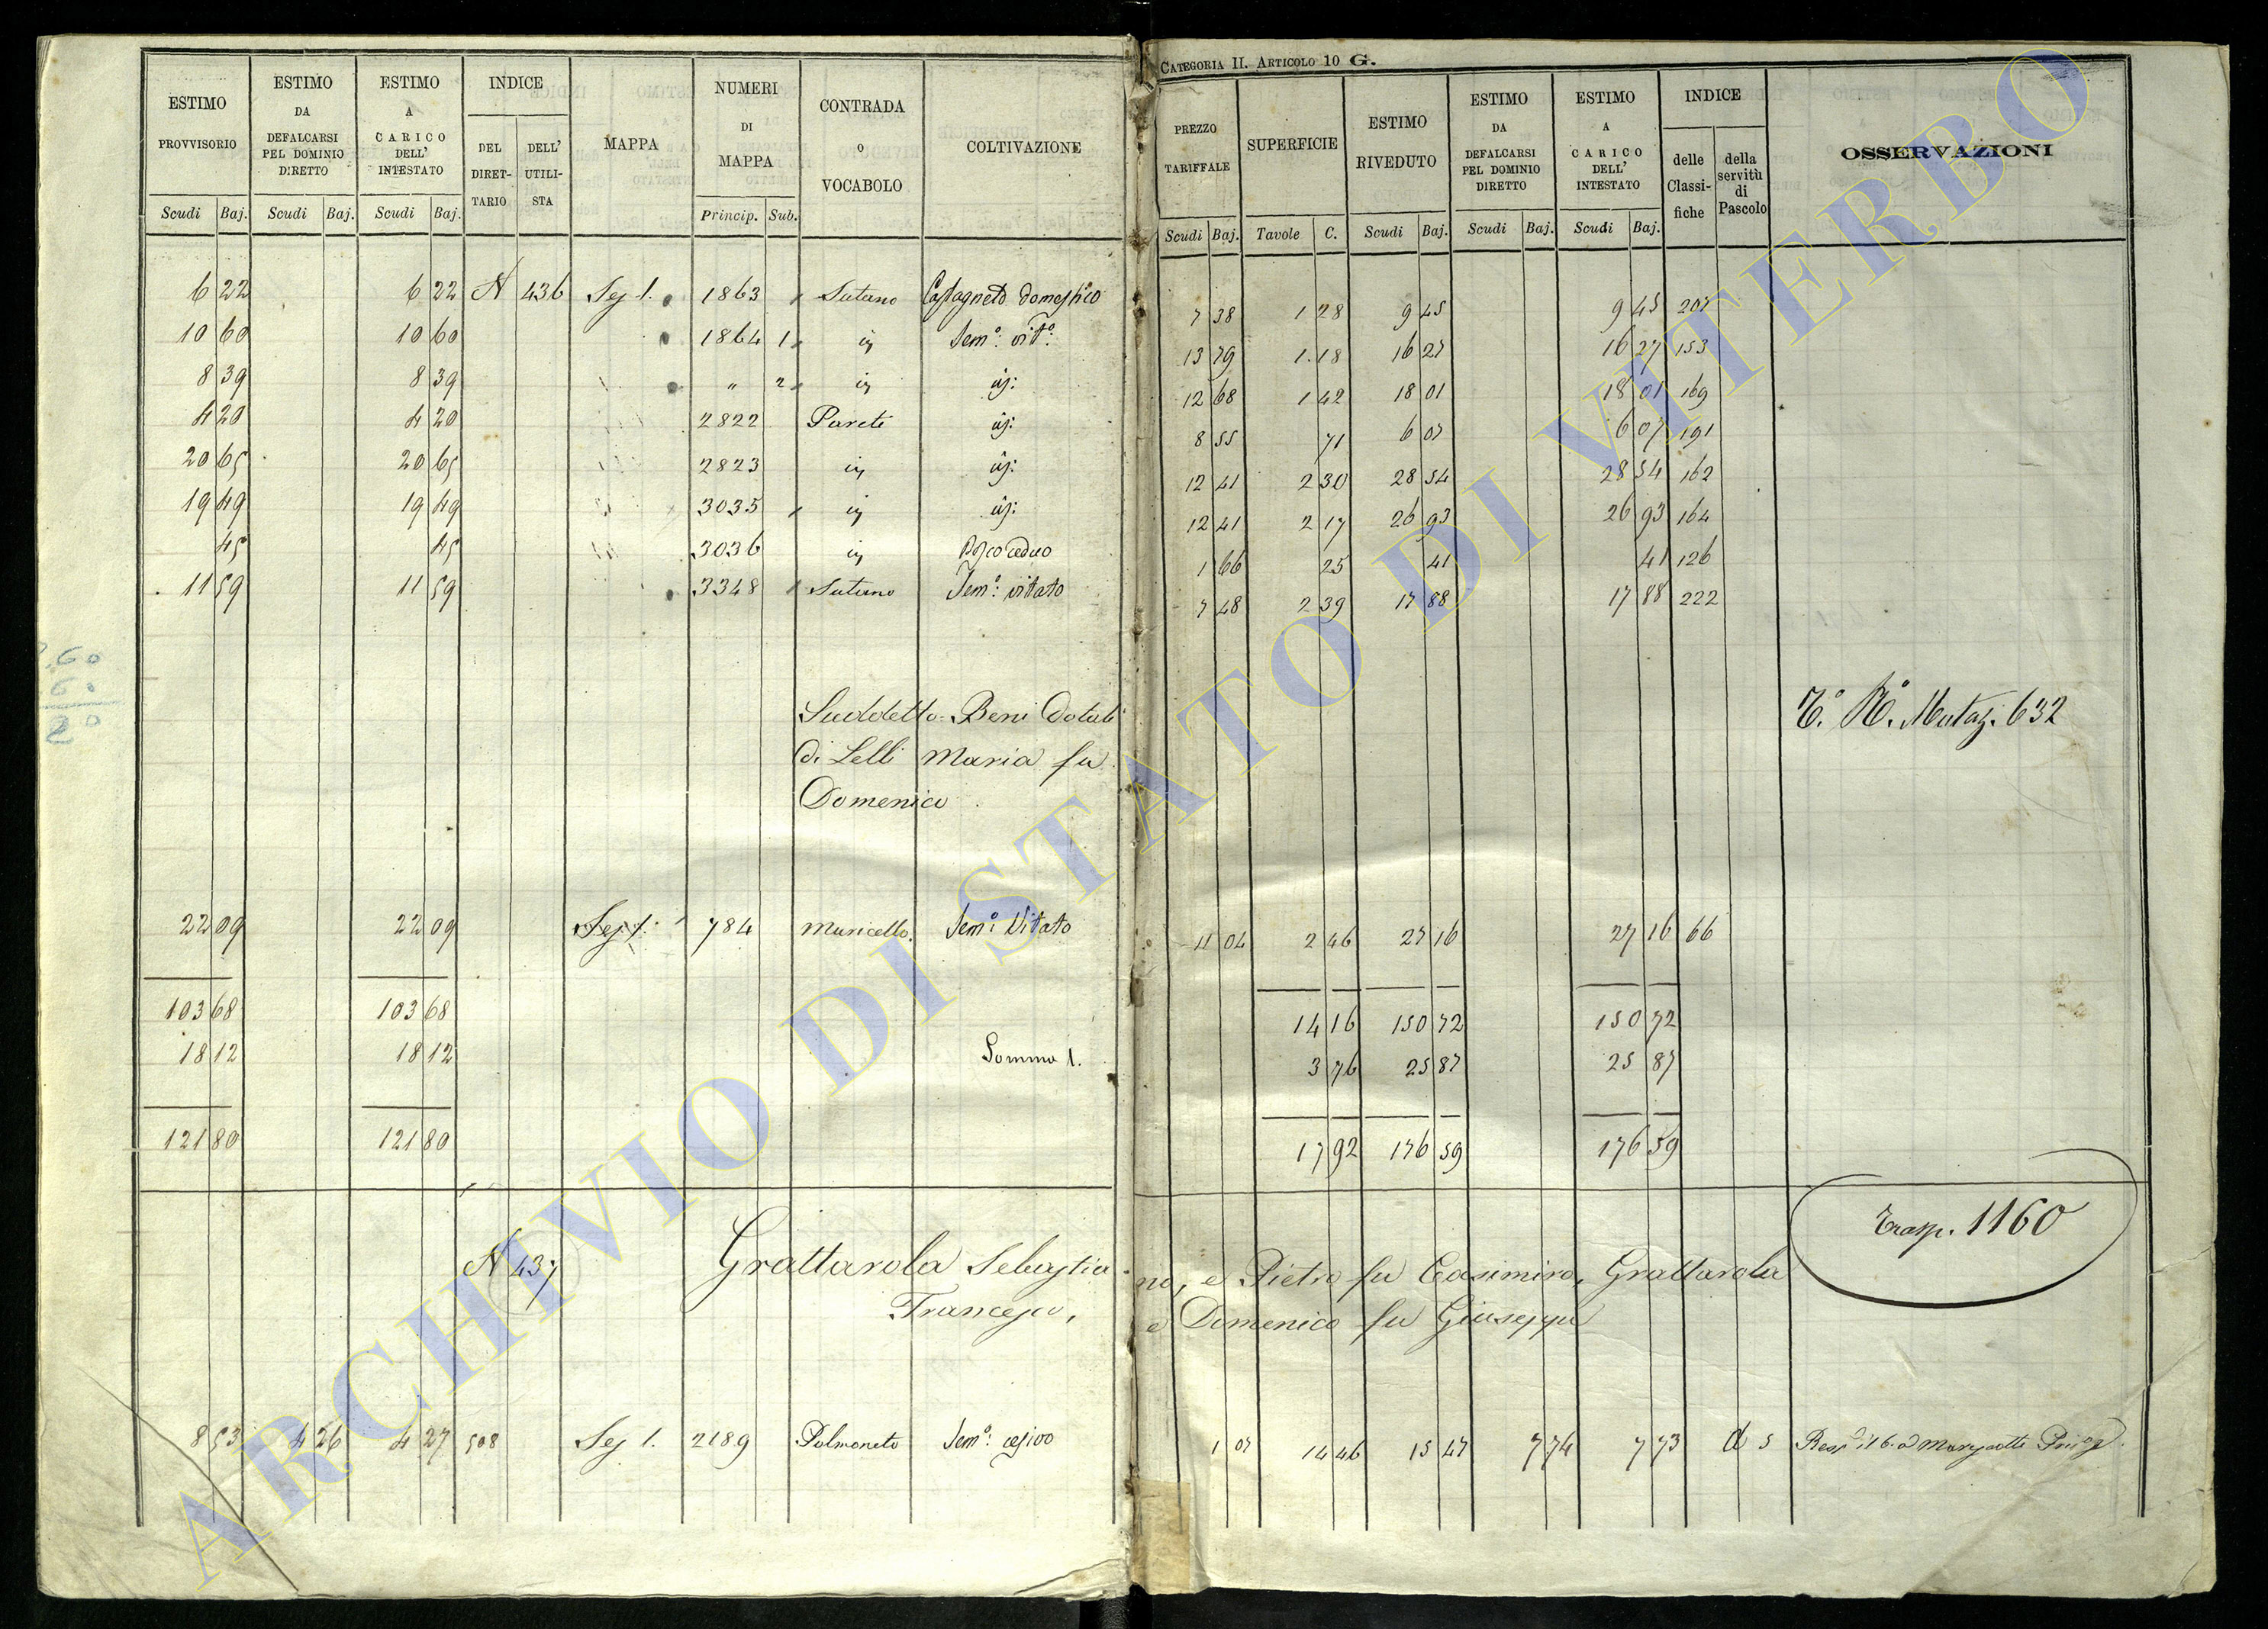 CATEGORIA II. ARTICOLO 10 G.
ESTIMO PROVVISORIO
ESTIMO DA DEFALCARSI PEL DOMINIO DIRETTO
ESTIMO A CARICO DELL' INTESTATO
INDICE
DEL DIRETTARIO
DELL' UTILISTA
MAPPA
NUMERI DI MAPPA
CONTRADA O VOCABOLO
COLTIVAZIONE
PREZZO TARIFFALE
SUPERFICIE
ESTIMO RIVEDUTO
ESTIMO DA DEFALCARSI PEL DOMINIO DIRETTO
ESTIMO A CARICO DELL' INTESTATO
INDICE
delle Classifiche
della servitù di Pascolo
OSSERVAZIONI
Scudi Baj. Scudi Baj. Scudi Baj. Princip. Sub. Scudi Baj. Tavole C. Scudi Baj. Scudi Baj. Scudi Baj.
6 22 6 22 N 436 Sez 1. 1863 Suturno Castagneto domestico 7 38 1 28 9 45 9 45 207
10 60 10 60 1864 1 ij Sem.º vit.º 13 79 1.18 16 27 16 27 153
8 39 8 39 " 2 ij ij: 12 68 1 42 18 01 18 01 169
4 20 4 20 2822 Pareti ij: 8 55 71 6 07 6 07 191
20 65 20 65 2823 ij ij: 12 41 2 30 28 54 28 54 162
19 49 19 49 3035 ij ij: 12 41 2 17 26 93 26 93 164
45 45 3036 ij Bosco ceduo 1 66 25 41 41 126
11 59 11 59 3348 Suturno Sem.º vitato 7 48 2 39 17 88 17 88 222
60
Suddetto Beni Dotali
di Lelli Maria fu
Domenico
Mutaz. 632
22 09 22 09 Sez 1. 784 Muricello. Sem.º Vitato 11 04 2 46 27 16 27 16 66
103 68 103 68 14 16 150 72 150 72
18 12 18 12 Somma 1. 3 76 25 87 25 87
121 80 121 80 17 92 176 59 176 59
Trasp. 1160
N 437 Grattarola Sebastiano, e Pietro fu Casimiro, Grattarola
Francesco, e Domenico fu Giuseppe
8 53 4 26 4 27 508 Sez 1. 2189 Polmoneto Sem.º cesivo 1 07 14 46 15 47 7 74 7 73 d 5
ARCHIVIO DI STATO DI VITERBO